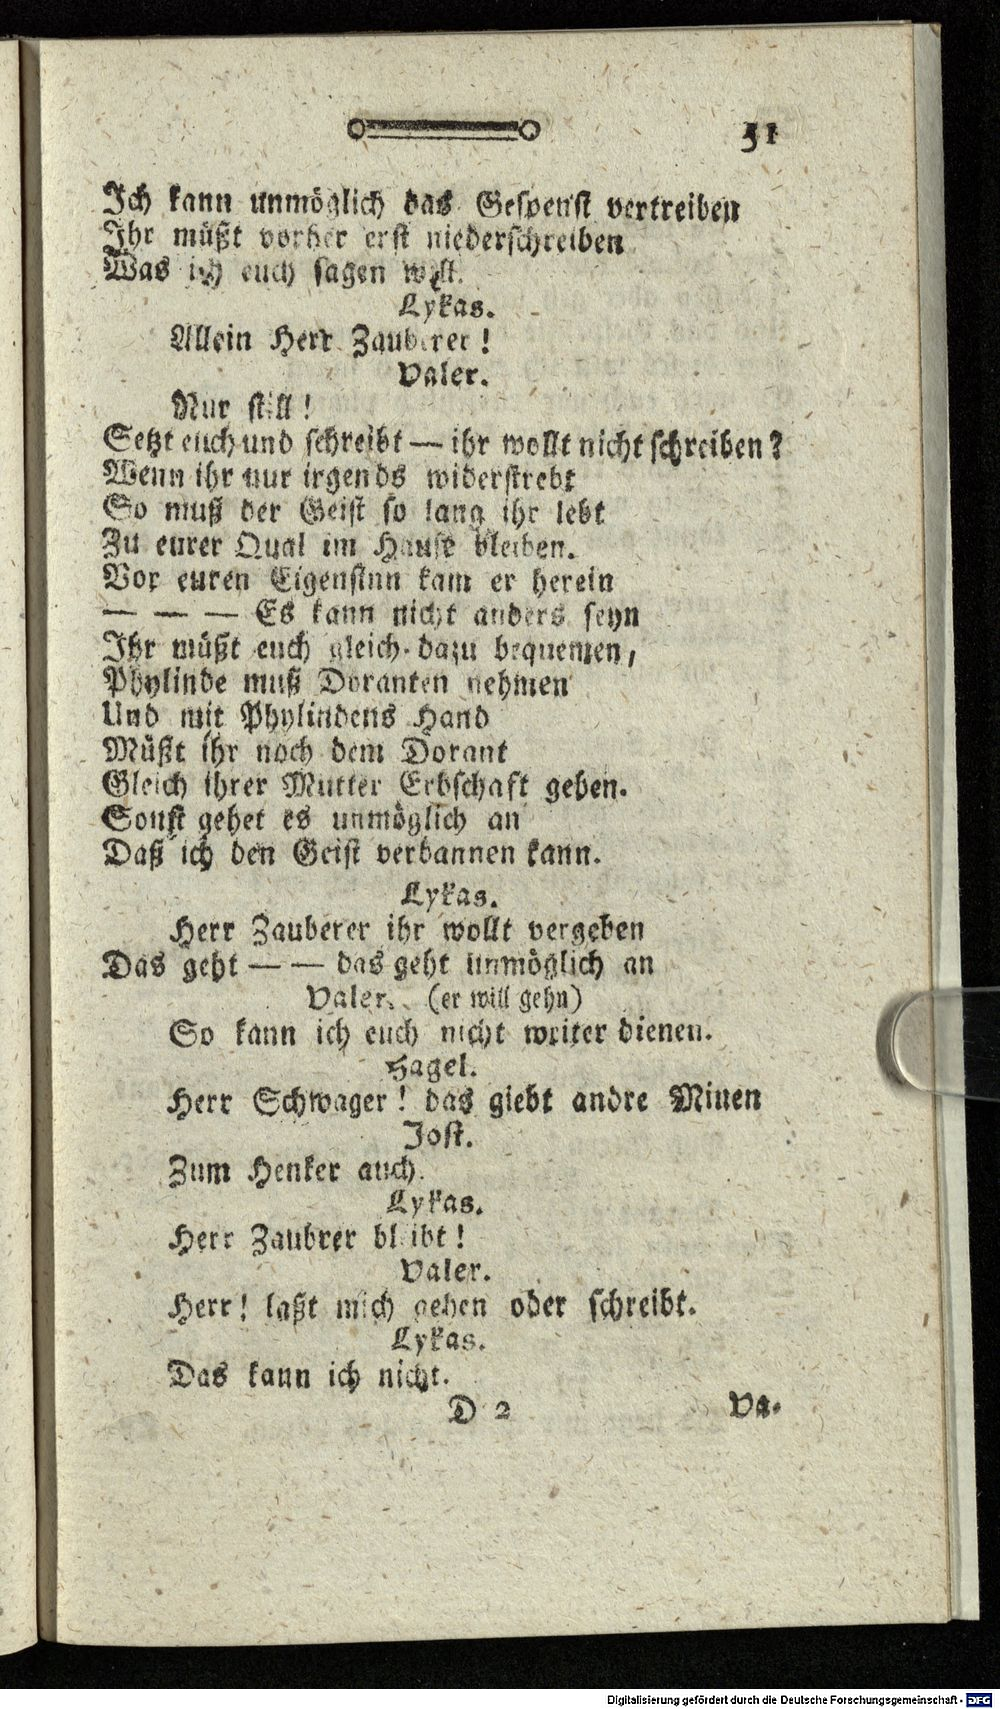 51
Ich kann unmöglich das Gespenst vertreiben
Ihr müßt vorher erst niederschreiben
Was ich euch sagen will.
Lykas.
Allein Herr Zauberer!
Valer.
Nur still!
Setzt euch und schreibt — ihr wollt nicht schreiben?
Wenn ihr nur irgends widerstrebt
So muß der Geist so lang ihr lebt
Zu eurer Qual im Hause bleiben.
Vor euren Eigensinn kam er herein
— — — Es kann nicht anders seyn
Ihr müßt euch gleich dazu bequemen,
Phylinde muß Doranten nehmen
Und mit Phylindens Hand
Müßt ihr noch dem Dorant
Gleich ihrer Mutter Erbschaft geben.
Sonst gehet es unmöglich an
Daß ich den Geist verbannen kann.
Lykas.
Herr Zauberer ihr wollt vergeben
Das geht — — das geht unmöglich an
Valer. (er will gehn)
So kann ich euch nicht weiter dienen.
Hagel.
Herr Schwager! das giebt andre Minen
Jost.
Zum Henker auch.
Lykas.
Herr Zaubrer bleibt!
Valer.
Herr! laßt mich gehen oder schreibt.
Lykas.
Das kann ich nicht.
D 2 Va-
Digitalisierung gefördert durch die Deutsche Forschungsgemeinschaft - DFG